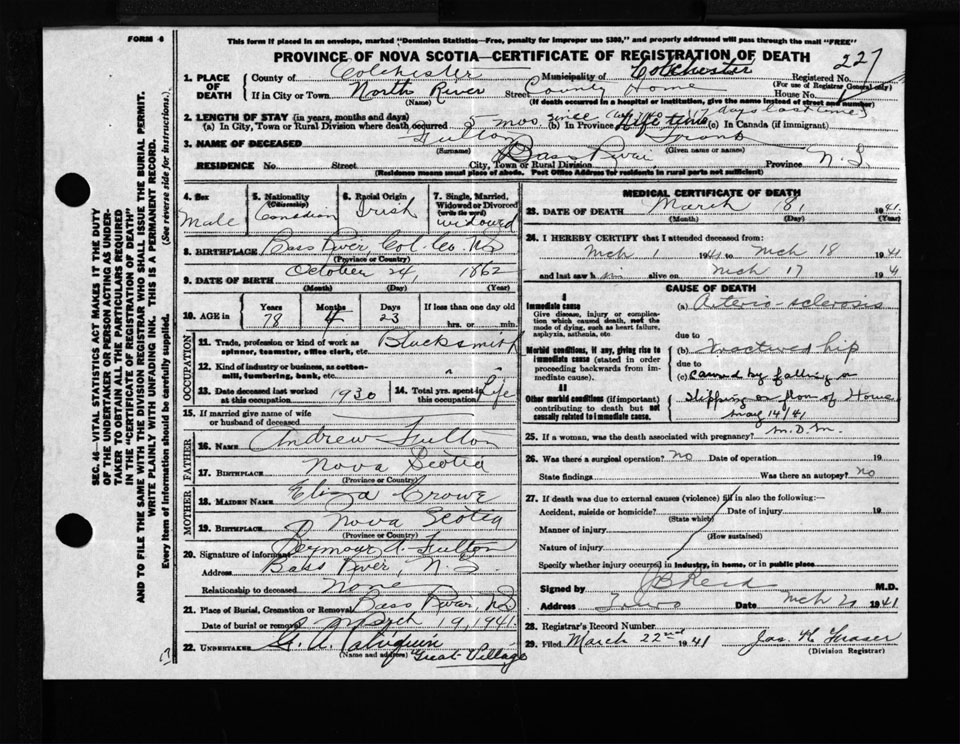 FORM 6
This form if placed in an envelope, marked "Dominion Statistics—Free, penalty for improper use $300," and properly addressed will pass through the mail "FREE"
PROVINCE OF NOVA SCOTIA—CERTIFICATE OF REGISTRATION OF DEATH
227
1. PLACE OF DEATH
County of Colchester Municipality of Colchester Registered No.
(For use of Registrar General only)
If in City or Town North River Street County Home House No.
(Name) (If death occurred in a hospital or institution, give the name instead of street and number)
2. LENGTH OF STAY (in years, months and days)
(a) In City, Town or Rural Division where death occurred 5 mos. since (17 days last time) (b) In Province Life time (c) In Canada (if immigrant)
3. NAME OF DECEASED Fulton Frank
(Surname) (Given name or names)
RESIDENCE No. Street City, Town or Rural Division Bass River Province N.S.
(Residence means usual place of abode. Post Office Address for residents in rural parts not sufficient)
4. Sex Male
5. Nationality (Citizenship) Canadian
6. Racial Origin Irish
7. Single, Married, Widowed or Divorced (write the word) widowed
8. BIRTHPLACE Bass River, Col. Co. N.S.
(Province or Country)
9. DATE OF BIRTH October 24, 1862
(Month) (Day) (Year)
10. AGE in Years 78 Months 4 Days 23 If less than one day old hrs. or min.
OCCUPATION
11. Trade, profession or kind of work as spinner, teamster, office clerk, etc. Blacksmith
12. Kind of industry or business, as cotton-mill, lumbering, bank, etc. " "
13. Date deceased last worked at this occupation 1930
14. Total yrs. spent in this occupation Life
15. If married give name of wife or husband of deceased
FATHER
16. NAME Andrew Fulton
17. BIRTHPLACE Nova Scotia
(Province or Country)
MOTHER
18. MAIDEN NAME Eliza Crowe
19. BIRTHPLACE Nova Scotia
(Province or Country)
20. Signature of informant Seymour A. Fulton
Address Bass River, N.S.
Relationship to deceased None
21. Place of Burial, Cremation or Removal Bass River, N.S.
Date of burial or removal March 19, 1941.
22. UNDERTAKER G. A.
(Name and address) Great Village
MEDICAL CERTIFICATE OF DEATH
23. DATE OF DEATH March 18, 1941.
(Month) (Day) (Year)
24. I HEREBY CERTIFY that I attended deceased from:
Mch 1 1941 to Mch 18 1941
and last saw him alive on Mch 17 194
CAUSE OF DEATH
I
Immediate cause
Give disease, injury or complication which caused death, not the mode of dying, such as heart failure, asphyxia, asthenia, etc
(a) Arterio-sclerosis
due to
Morbid conditions, if any, giving rise to immediate cause (stated in order proceeding backwards from immediate cause).
(b) Fractured hip
due to
(c) Caused by falling or
II
Other morbid conditions (if important) contributing to death but not causally related to immediate cause.
slipping on floor of Home
14/41
M.D.M.
25. If a woman, was the death associated with pregnancy?
26. Was there a surgical operation? No Date of operation 19
State findings Was there an autopsy? No
27. If death was due to external causes (violence) fill in also the following:—
Accident, suicide or homicide? Date of injury 19
(State which)
Manner of injury
(How sustained)
Nature of injury
Specify whether injury occurred in industry, in home, or in public place
Signed by J B Reid M.D.
Address Truro Date Mch 21 1941
28. Registrar's Record Number
29. Filed March 22nd 1941 Jas. H. Fraser
(Division Registrar)
SEC. 46—VITAL STATISTICS ACT MAKES IT THE DUTY
OF THE UNDERTAKER OR PERSON ACTING AS UNDERTAKER TO OBTAIN ALL THE PARTICULARS REQUIRED
IN THE "CERTIFICATE OF REGISTRATION OF DEATH"
AND TO FILE THE SAME WITH THE DIVISION REGISTRAR WHO SHALL ISSUE THE BURIAL PERMIT.
WRITE PLAINLY WITH UNFADING INK. THIS IS A PERMANENT RECORD.
Every item of information should be carefully supplied. (See reverse side for instructions.)